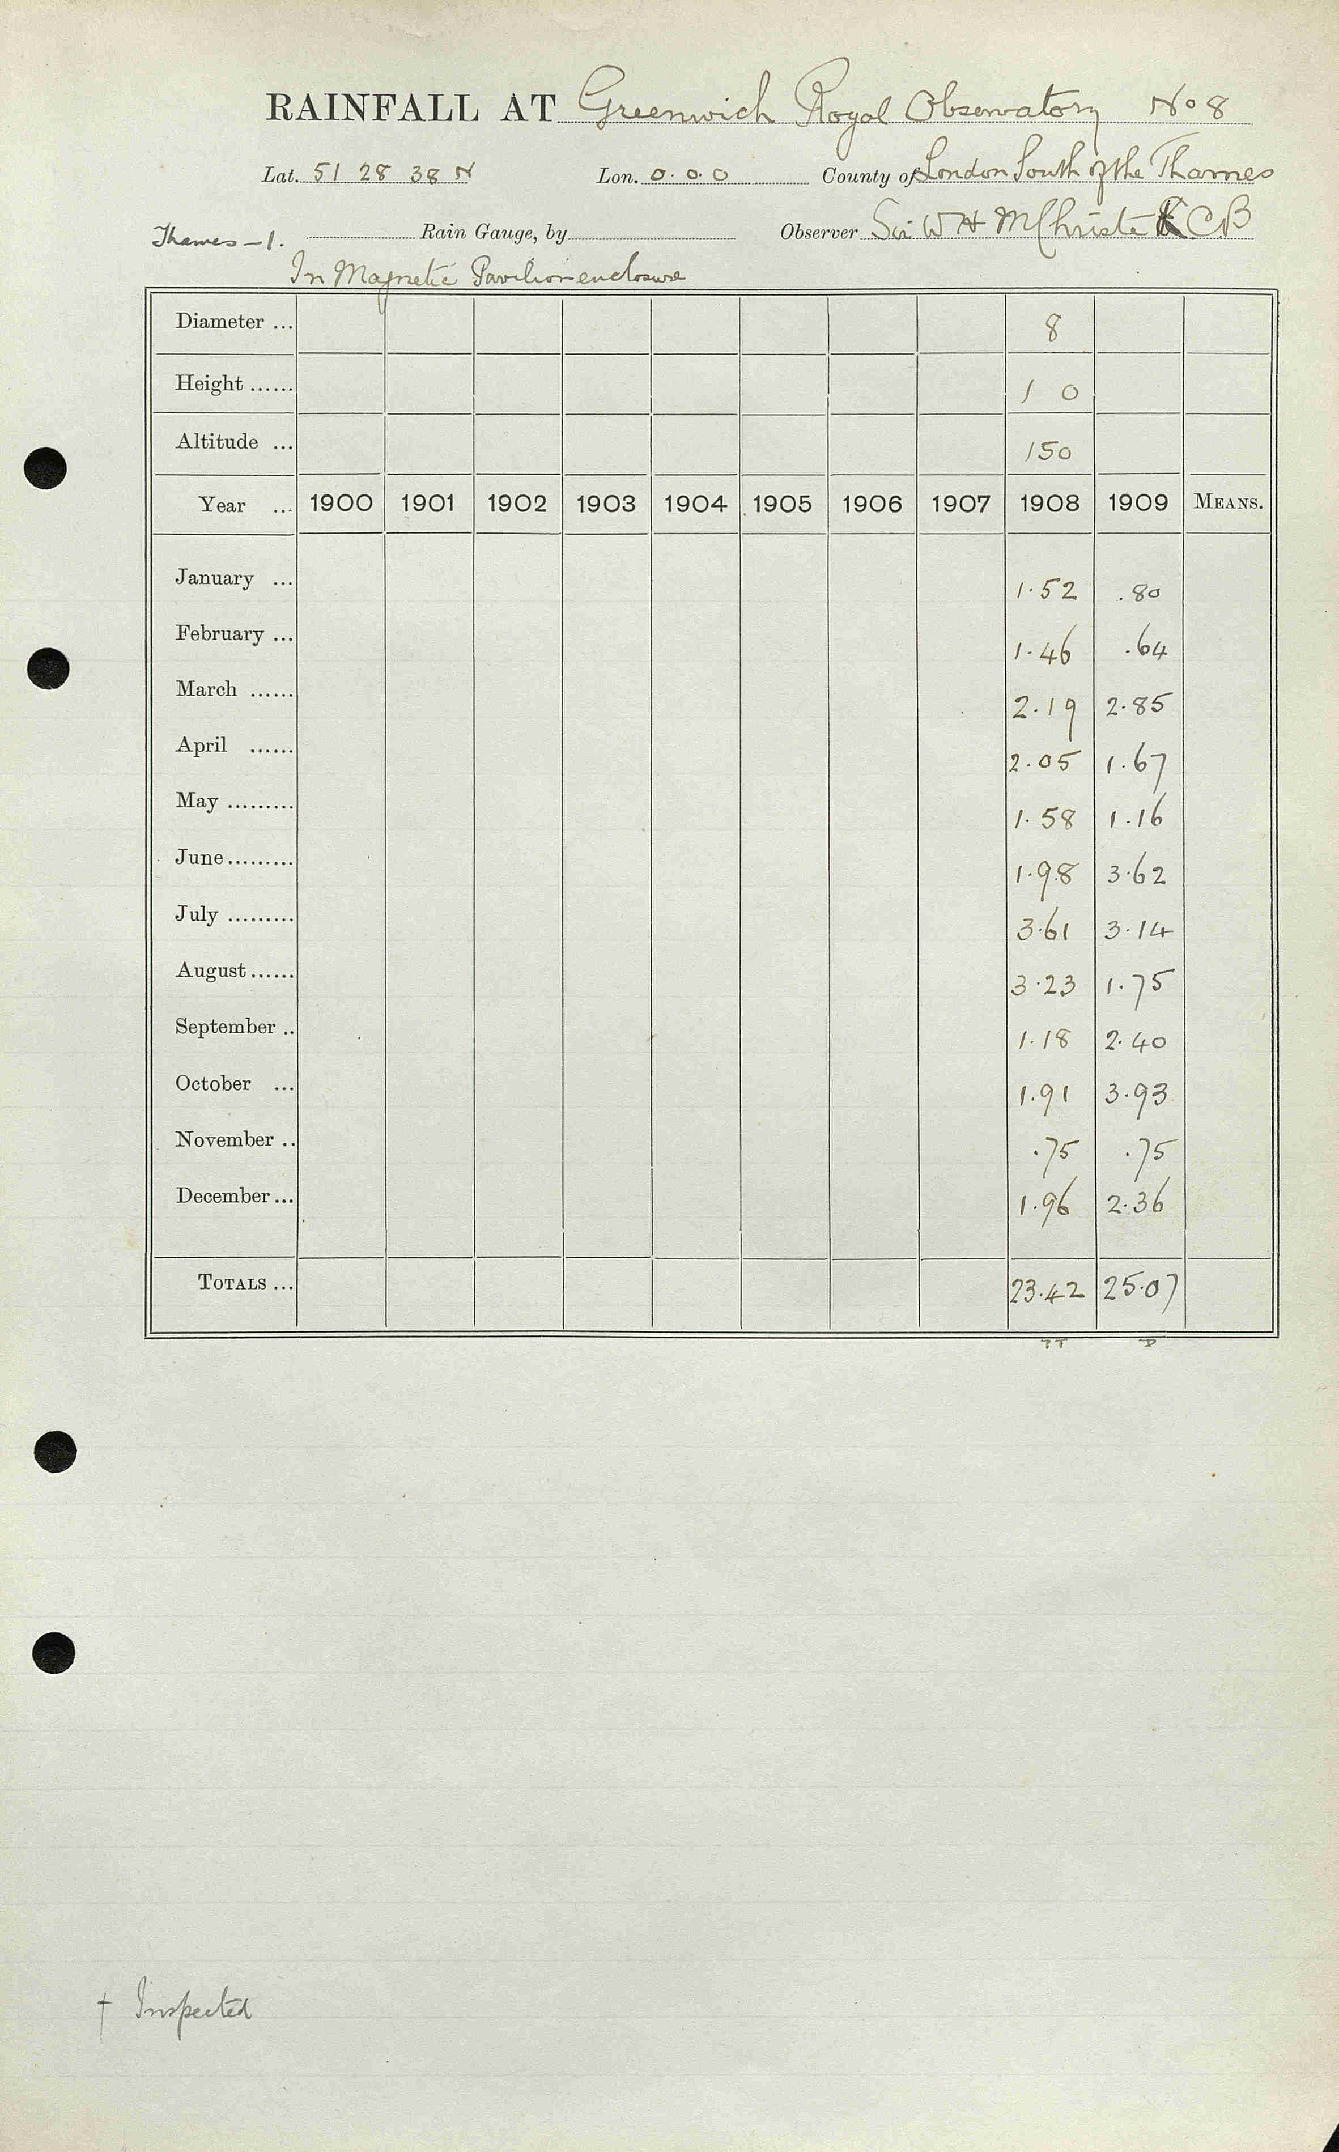 RAINFALL AT Greenwich Royal Observatory No 8
Lat. 51 28 38 N Lon. 0. 0. 0 County of London South of the Thames
Thames - 1. Rain Gauge, by Observer Sir W H M Christie KCB
In Magnetic Pavilion enclosure
Diameter ... 8
Height ...... 1 0
Altitude ... 150
Year ... 1900 1901 1902 1903 1904 1905 1906 1907 1908 1909 MEANS.
January ... 1.52 .80
February ... 1.46 .64
March ...... 2.19 2.85
April ...... 2.05 1.67
May ......... 1.58 1.16
June ......... 1.98 3.62
July ......... 3.61 3.14
August ...... 3.23 1.75
September .. 1.18 2.40
October ... 1.91 3.93
November .. .75 .75
December ... 1.96 2.36
TOTALS ... 23.42 25.07
† Inspected